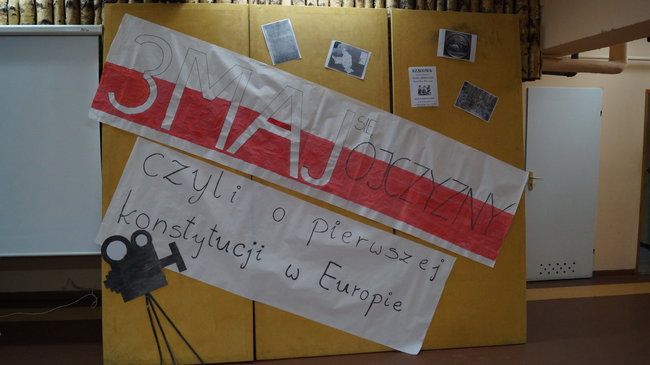 3 MAJ SIĘ OJCZYZNY
czyli o pierwszej
konstytucji w Europie